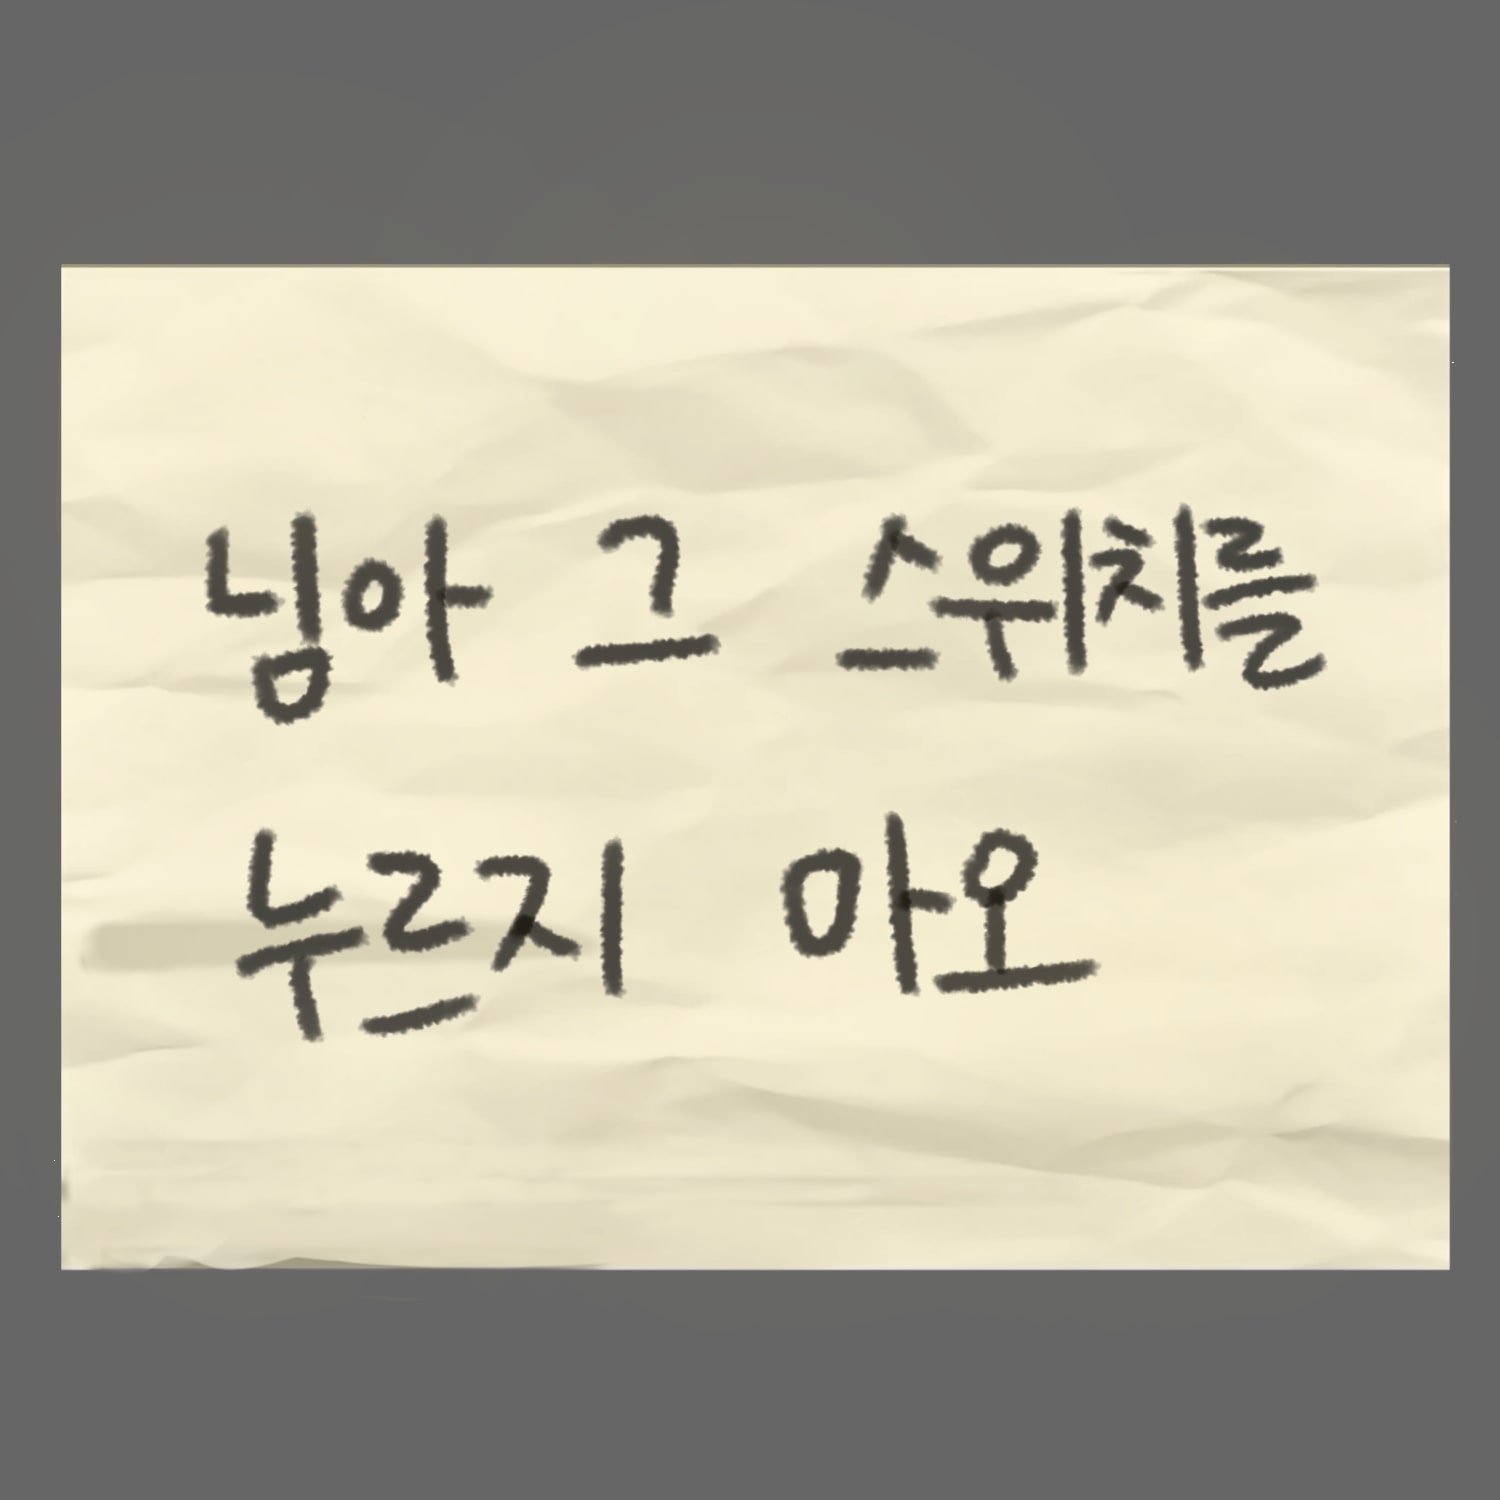 님아 그 스위치를
누르지 마오